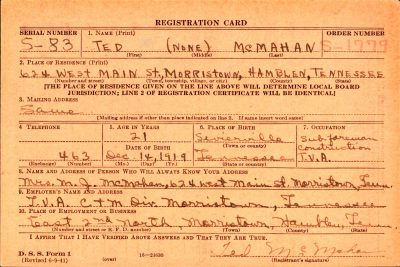 REGISTRATION CARD
SERIAL NUMBER 1. NAME (Print) ORDER NUMBER
S-83 TED (NONE) MCMAHAN S-1779
(First) (Middle) (Last)
2. PLACE OF RESIDENCE (Print)
624 WEST MAIN ST, MORRISTOWN, HAMBLEN, TENNESSEE
(Number and street) (Town, township, village, or city) (County) (State)
[THE PLACE OF RESIDENCE GIVEN ON THE LINE ABOVE WILL DETERMINE LOCAL BOARD
JURISDICTION; LINE 2 OF REGISTRATION CERTIFICATE WILL BE IDENTICAL]
3. MAILING ADDRESS
Same
[Mailing address if other than place indicated on line 2. If same insert word same]
4. TELEPHONE 5. AGE IN YEARS 6. PLACE OF BIRTH 7. OCCUPATION
21 Sevierville Sub foreman
DATE OF BIRTH (Town or county) construction
463 Dec 14, 1919 Tennessee T.V.A.
(Exchange) (Number) (Mo.) (Day) (Yr.) (State or country)
8. NAME AND ADDRESS OF PERSON WHO WILL ALWAYS KNOW YOUR ADDRESS
Mrs. M. J. McMahan, 624 West Main St. Morristown, Tenn
9. EMPLOYER'S NAME AND ADDRESS
T.V.A. C + M Div. Morristown, Tennessee
10. PLACE OF EMPLOYMENT OR BUSINESS
East 2nd North, Morristown, Hamblen, Tenn
(Number and street or R. F. D. number) (Town) (County) (State)
I AFFIRM THAT I HAVE VERIFIED ABOVE ANSWERS AND THAT THEY ARE TRUE.
D. S. S. Form 1 Ted McMahan
(Revised 6-9-41) (over) 16—21630 (Registrant's signature)